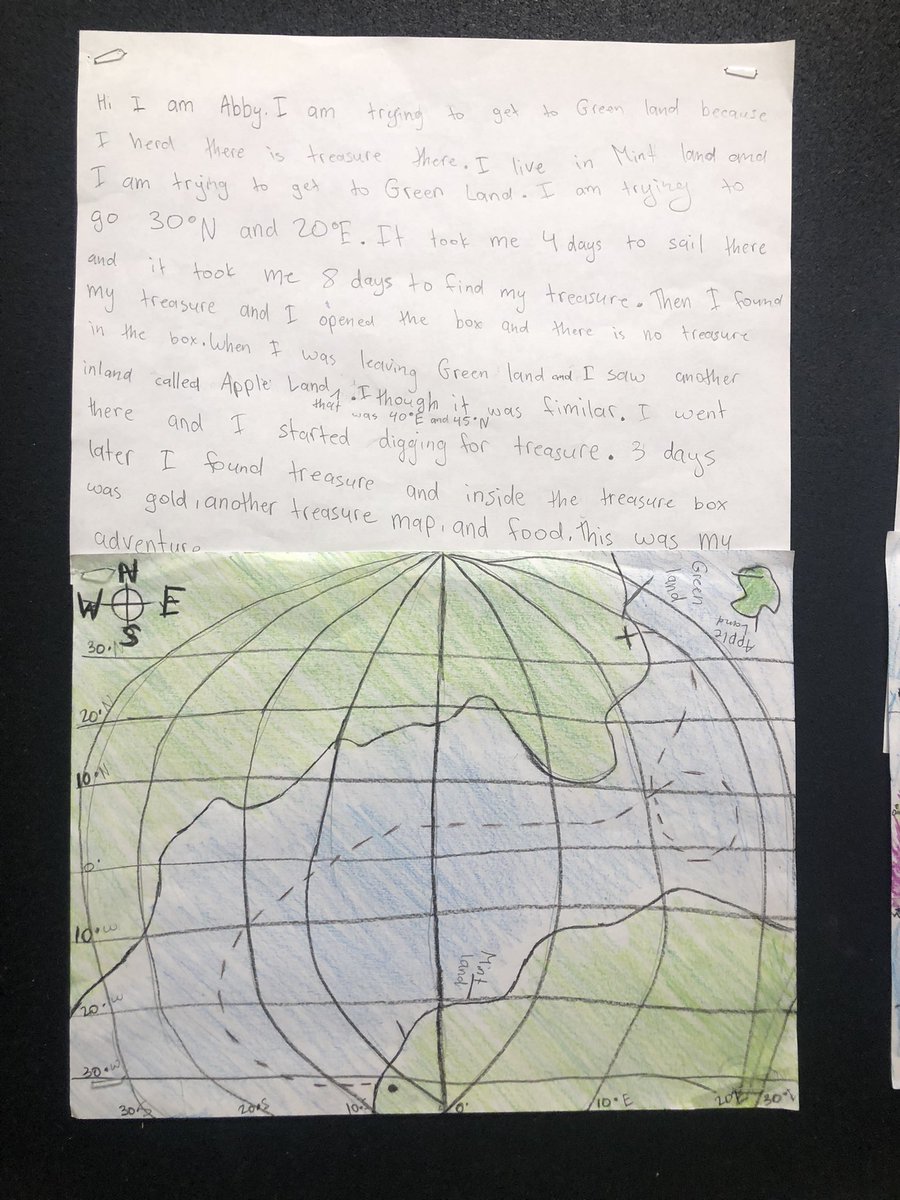 Hi I am Abby. I am trying to get to Green land because
I herd there is treasure there. I live in Mint land and
I am trying to get to Green Land. I am trying to
go 30°N and 20°E. It took me 4 days to sail there
and it took me 8 days to find my treasure. Then I found
my treasure and I opened the box and there is no treasure
in the box. When I was leaving Green land and I saw another
inland called Apple Land. I though it was fimilar. I went
that was 40°E and 45°N
there and I started digging for treasure. 3 days
later I found treasure and inside the treasure box
was gold, another treasure map, and food. This was my
adventure
N
W E
S
Green land
Apple Land
30°N
20°N
10°N
0°
10°W
20°W
30°W
Mint land
30°S
20°S
10°S
0°
10°E
20°E
30°E